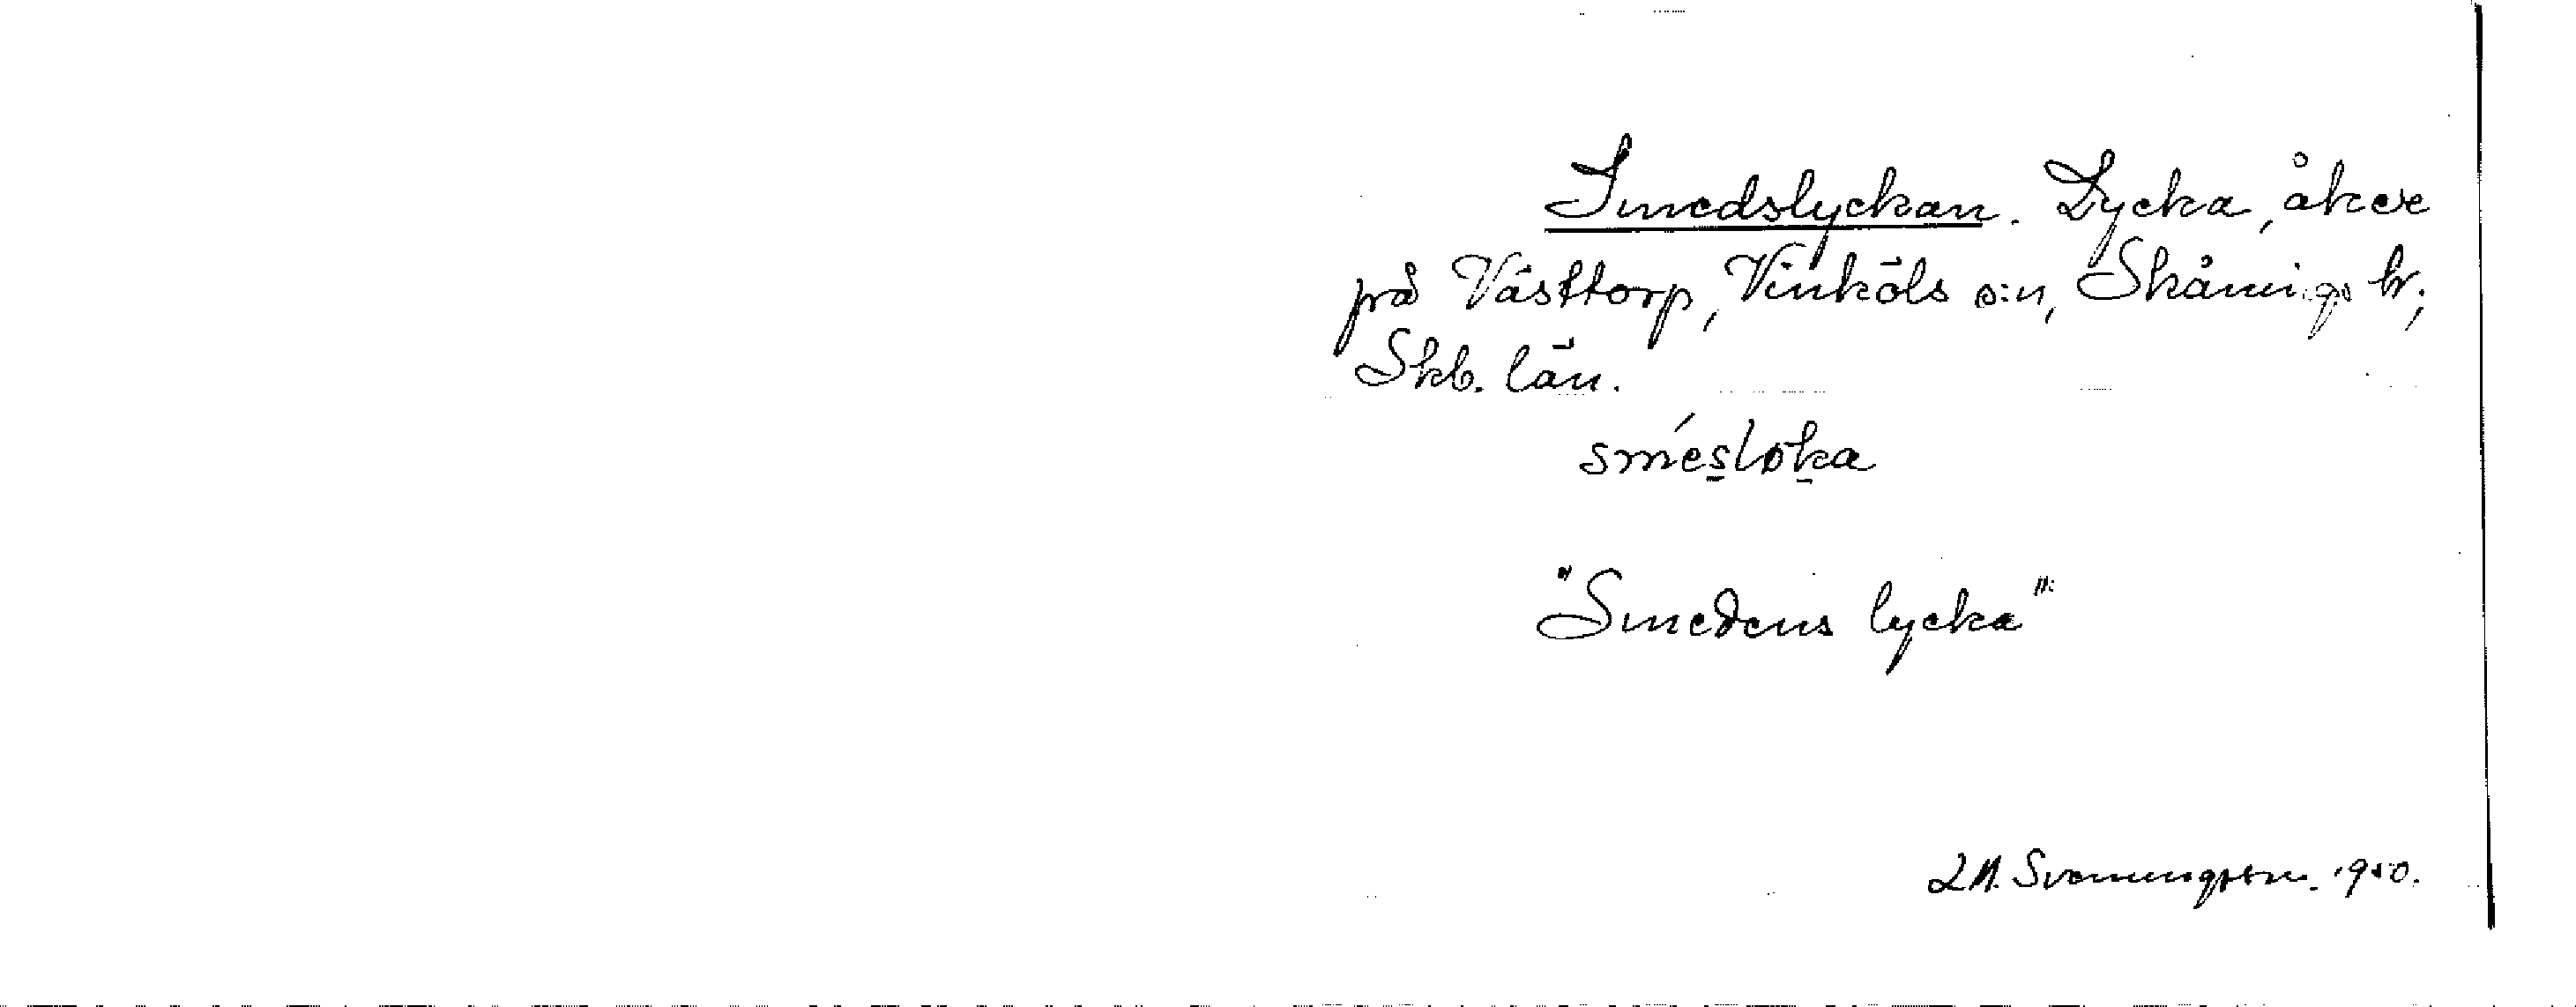 Smedslyckan. Lycka, åker
på Västtorp, Vinköls s:n, Skånings hr,
Skb. län.
smésløka
"Smedens lycka"
Svenungsson. 1950.